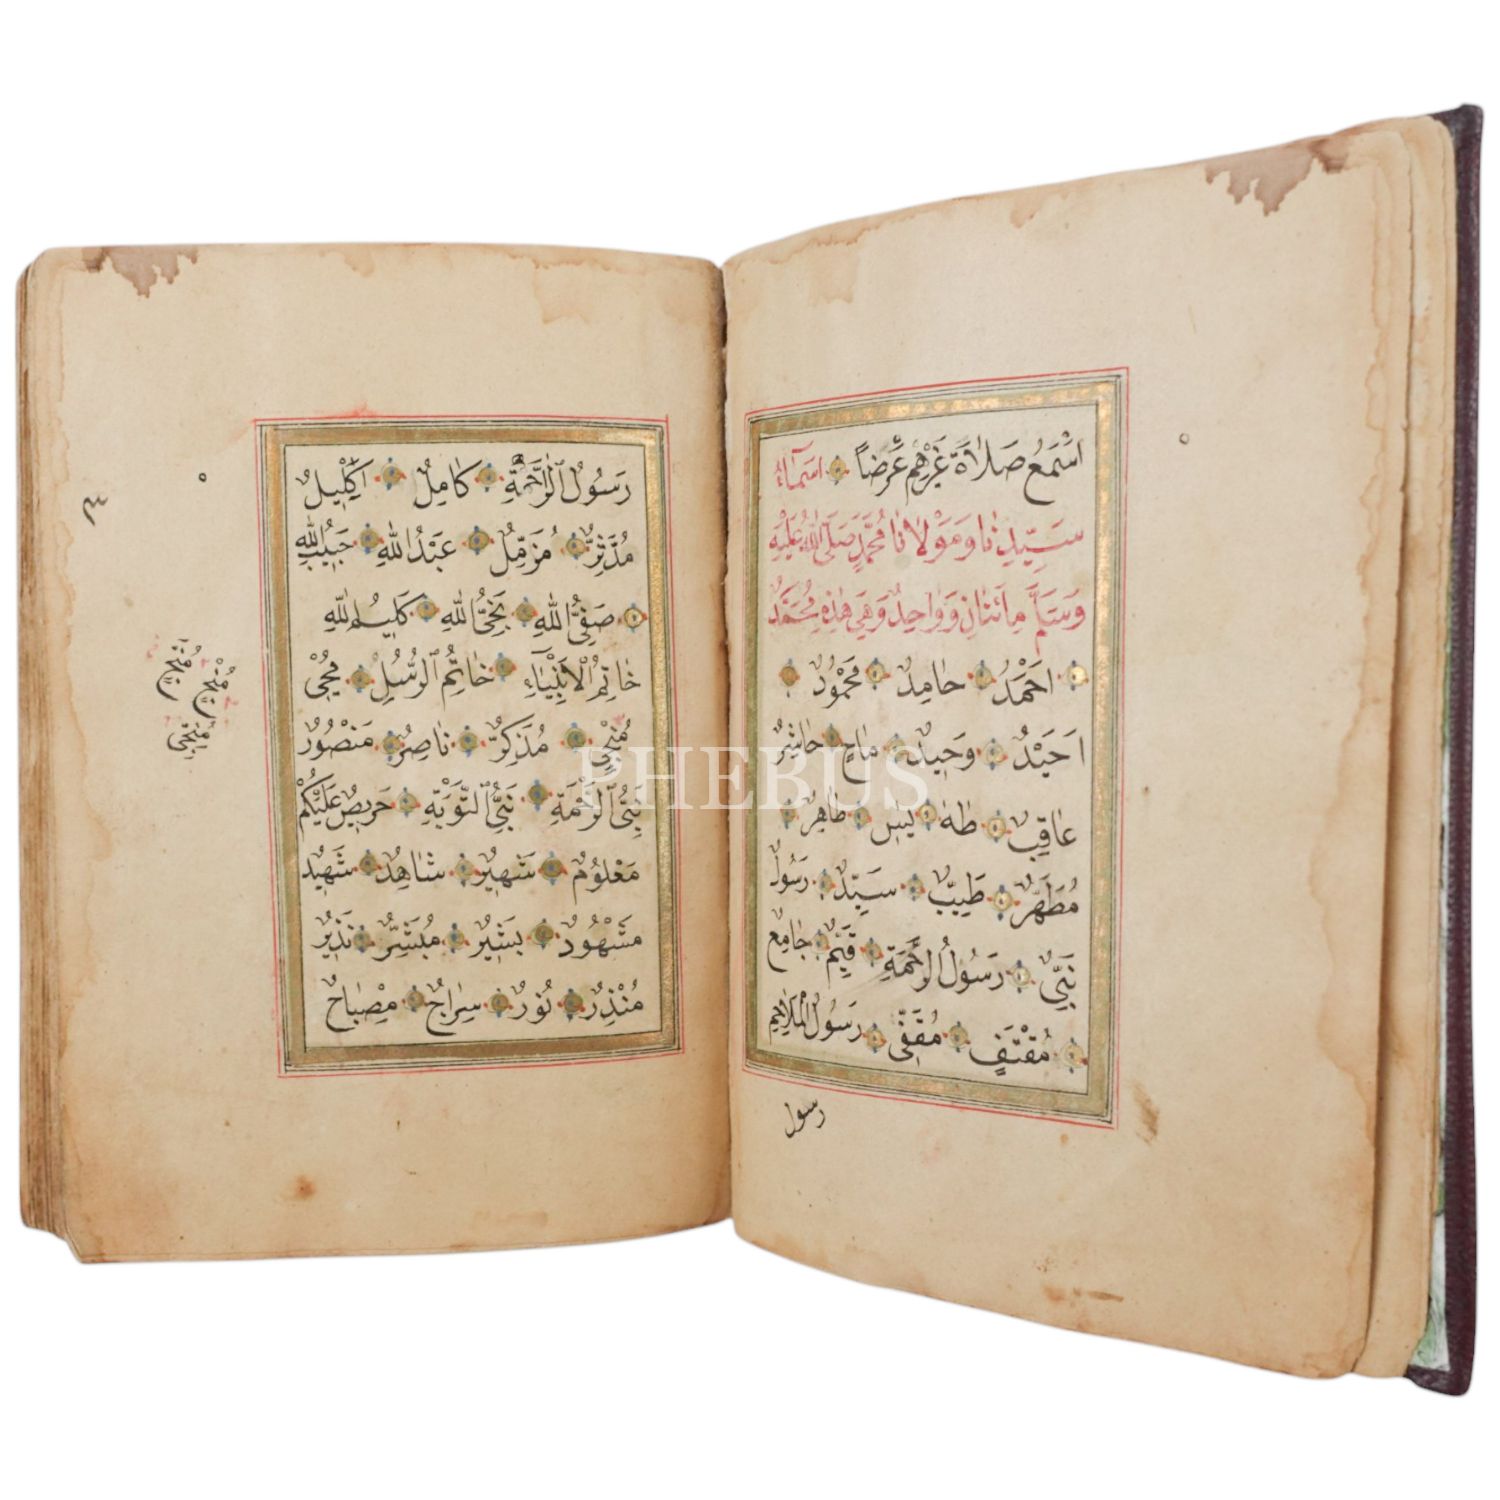 اَسْمَعُ صَلَاةَ غَيْرِهِمْ عَرْضًا اَسْمَاءُ
سَيِّدِنَا وَمَوْلَانَا مُحَمَّدٍ صَلَّى اللّٰهُ عَلَيْهِ
وَسَلَّمَ مِائَتَانِ وَوَاحِدٌ وَهِيَ هٰذِهِ مُحَمَّدٌ
اَحْمَدُ حَامِدٌ مَحْمُودٌ
اَحِيْدٌ وَحِيدٌ مَاحٍ حَاشِرٌ
عَاقِبٌ طٰهٰ يٰسٓ طَاهِرٌ
مُطَهَّرٌ طَيِّبٌ سَيِّدٌ رَسُولٌ
نَبِيٌّ رَسُولُ الرَّحْمَةِ قَيِّمٌ جَامِعٌ
مُقْتَفٍ مُقَفًّى رَسُولُ الْمَلَاحِمِ
رسول
رَسُولُ الرَّاحَةِ كَامِلٌ اِكْلِيلٌ
مُدَّثِّرٌ مُزَّمِّلٌ عَبْدُ اللّٰهِ حَبِيبُ اللّٰهِ
صَفِيُّ اللّٰهِ نَجِيُّ اللّٰهِ كَلِيمُ اللّٰهِ
خَاتِمُ الْاَنْبِيَاءِ خَاتِمُ الرُّسُلِ مُحْيِي
مُنْجِي مُذَكِّرٌ نَاصِرٌ مَنْصُورٌ
نَبِيُّ الرَّحْمَةِ نَبِيُّ التَّوْبَةِ حَرِيصٌ عَلَيْكُمْ
مَعْلُومٌ شَهِيرٌ شَاهِدٌ شَهِيدٌ
مَشْهُودٌ بَشِيرٌ مُبَشِّرٌ نَذِيرٌ
مُنْذِرٌ نُورٌ سِرَاجٌ مِصْبَاحٌ
PHEBUS